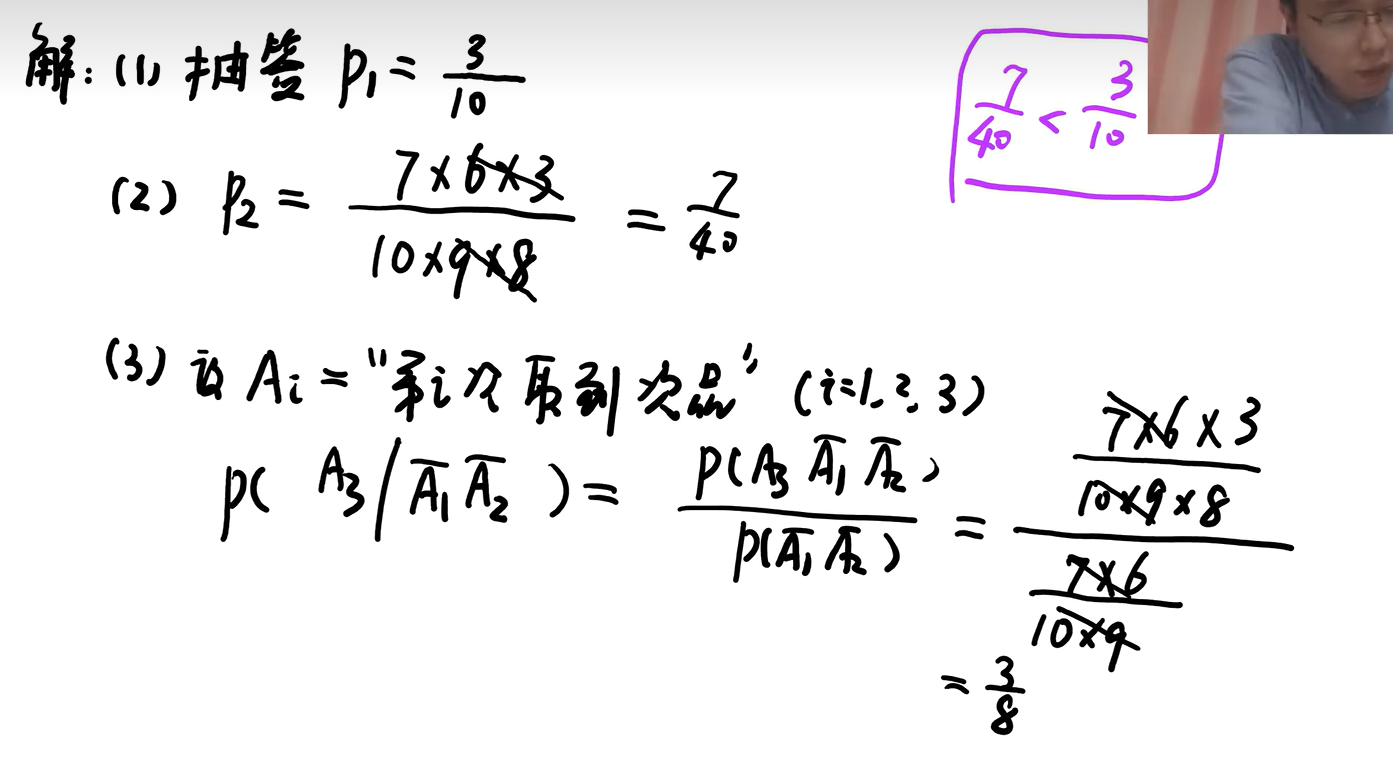 解：(1) 抽签 P₁ = 3/10
7/40 < 3/10
(2) P₂ = (7×6×3)/(10×9×8) = 7/40
(3) 设 Aᵢ = "第i次取到次品" (i=1, 2, 3)
P( A₃/A̅₁A̅₂ ) = P(A₃A̅₁A̅₂)/P(A̅₁A̅₂) = ((7×6×3)/(10×9×8))/((7×6)/(10×9))
= 3/8